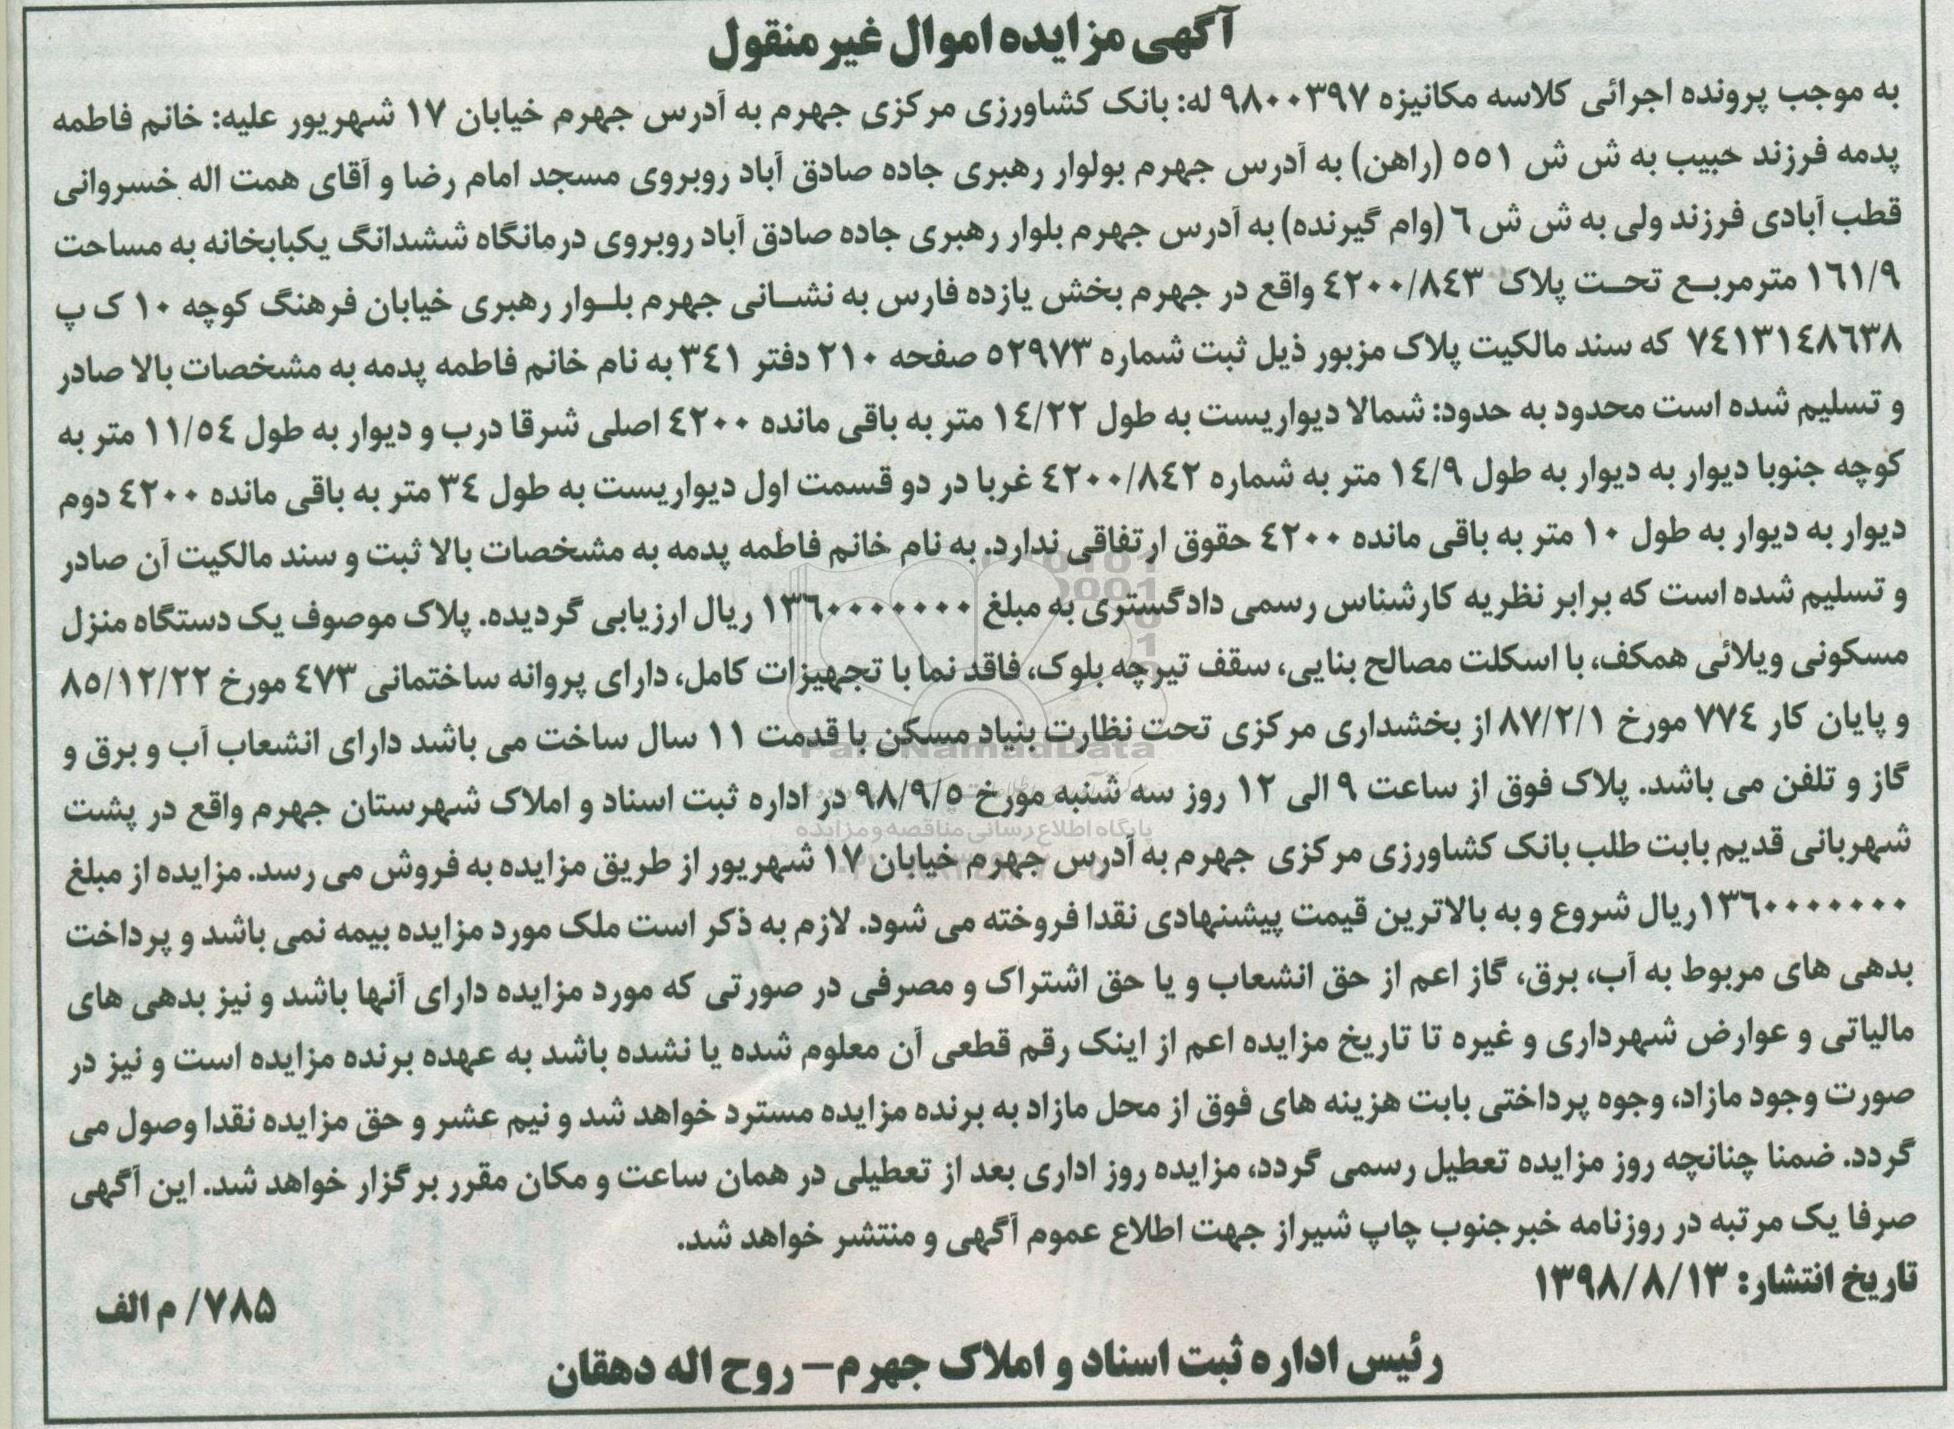 آگهی مزایده اموال غیر منقول
به موجب پرونده اجرائی کلاسه مکانیزه ۹۸۰۰۳۹۷ له: بانک کشاورزی مرکزی جهرم به آدرس جهرم خیابان ۱۷ شهریور علیه: خانم فاطمه
پدمه فرزند حبیب به ش ش ۵۵۱ (راهن) به آدرس جهرم بولوار رهبری جاده صادق آباد روبروی مسجد امام رضا و آقای همت اله خسروانی
قطب آبادی فرزند ولی به ش ش ۶ (وام گیرنده) به آدرس جهرم بلوار رهبری جاده صادق آباد روبروی درمانگاه ششدانگ یکبابخانه به مساحت
۱۶۱/۹ مترمربع تحت پلاک ۴۲۰۰/۸۴۳ واقع در جهرم بخش یازده فارس به نشانی جهرم بلوار رهبری خیابان فرهنگ کوچه ۱۰ ک پ
۷۴۱۳۱۴۸۶۳۸ که سند مالکیت پلاک مزبور ذیل ثبت شماره ۵۲۹۷۳ صفحه ۲۱۰ دفتر ۳۴۱ به نام خانم فاطمه پدمه به مشخصات بالا صادر
و تسلیم شده است محدود به حدود: شمالا دیواریست به طول ۱۴/۲۲ متر به باقی مانده ۴۲۰۰ اصلی شرقا درب و دیوار به طول ۱۱/۵۴ متر به
کوچه جنوبا دیوار به دیوار به طول ۱۴/۹ متر به شماره ۴۲۰۰/۸۴۲ غربا در دو قسمت اول دیواریست به طول ۳۴ متر به باقی مانده ۴۲۰۰ دوم
دیوار به دیوار به طول ۱۰ متر به باقی مانده ۴۲۰۰ حقوق ارتفاقی ندارد. به نام خانم فاطمه پدمه به مشخصات بالا ثبت و سند مالکیت آن صادر
و تسلیم شده است که برابر نظریه کارشناس رسمی دادگستری به مبلغ ۱۳۶۰۰۰۰۰۰۰ ریال ارزیابی گردیده. پلاک موصوف یک دستگاه منزل
مسکونی ویلائی همکف، با اسکلت مصالح بنایی، سقف تیرچه بلوک، فاقد نما با تجهیزات کامل، دارای پروانه ساختمانی ۴۷۳ مورخ ۸۵/۱۲/۲۲
و پایان کار ۷۷۴ مورخ ۸۷/۲/۱ از بخشداری مرکزی تحت نظارت بنیاد مسکن با قدمت ۱۱ سال ساخت می باشد دارای انشعاب آب و برق و
گاز و تلفن می باشد. پلاک فوق از ساعت ۹ الی ۱۲ روز سه شنبه مورخ ۹۸/۹/۵ در اداره ثبت اسناد و املاک شهرستان جهرم واقع در پشت
شهربانی قدیم بابت طلب بانک کشاورزی مرکزی جهرم به آدرس جهرم خیابان ۱۷ شهریور از طریق مزایده به فروش می رسد. مزایده از مبلغ
۱۳۶۰۰۰۰۰۰۰ریال شروع و به بالاترین قیمت پیشنهادی نقدا فروخته می شود. لازم به ذکر است ملک مورد مزایده بیمه نمی باشد و پرداخت
بدهی های مربوط به آب، برق، گاز اعم از حق انشعاب و یا حق اشتراک و مصرفی در صورتی که مورد مزایده دارای آنها باشد و نیز بدهی های
مالیاتی و عوارض شهرداری و غیره تا تاریخ مزایده اعم از اینک رقم قطعی آن معلوم شده یا نشده باشد به عهده برنده مزایده است و نیز در
صورت وجود مازاد، وجوه پرداختی بابت هزینه های فوق از محل مازاد به برنده مزایده مسترد خواهد شد و نیم عشر و حق مزایده نقدا وصول می
گردد. ضمنا چنانچه روز مزایده تعطیل رسمی گردد، مزایده روز اداری بعد از تعطیلی در همان ساعت و مکان مقرر برگزار خواهد شد. این آگهی
صرفا یک مرتبه در روزنامه خبرجنوب چاپ شیراز جهت اطلاع عموم آگهی و منتشر خواهد شد.
تاریخ انتشار: ۱۳۹۸/۸/۱۳
۷۸۵/ م الف
رئیس اداره ثبت اسناد و املاک جهرم– روح اله دهقان
ParsNamadData
پایگاه اطلاع رسانی مناقصه و مزایده